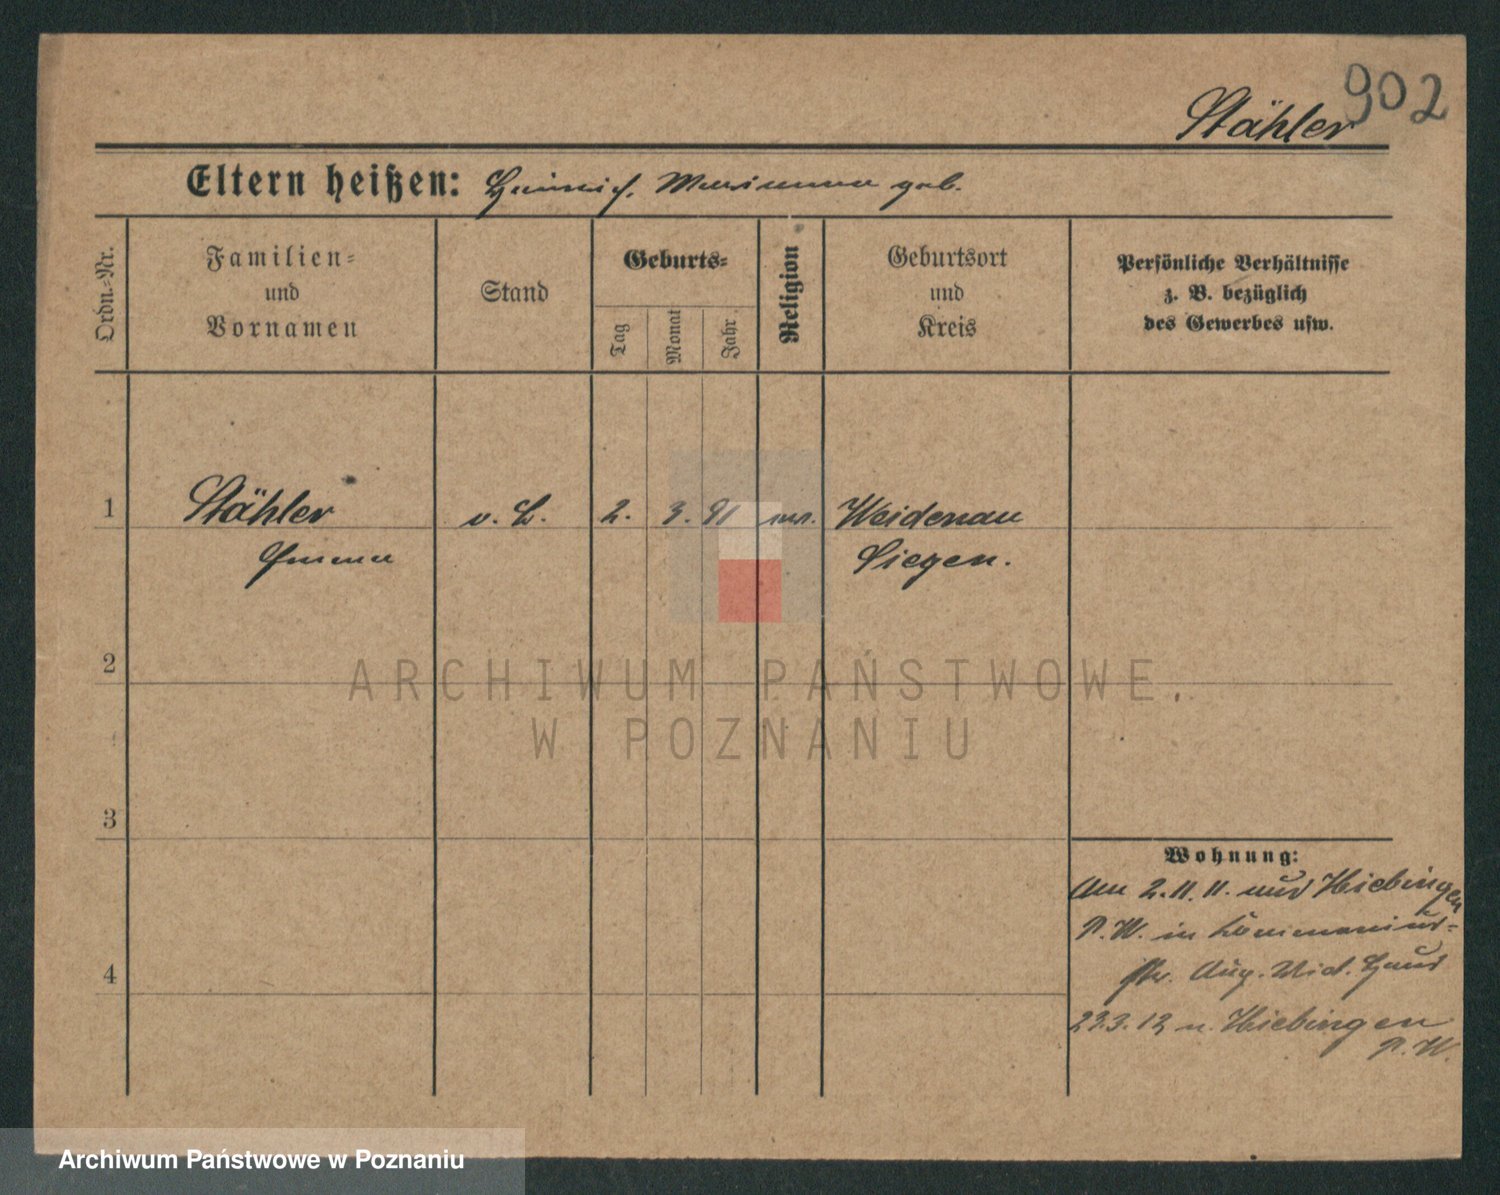 902
Stähler
Eltern heißen: Heinrich, geb.
Ordn.-Nr.
Familien-
und
Vornamen
Stand
Geburts-
Tag
Monat
Jahr
Religion
Geburtsort
und
Kreis
Persönliche Verhältnisse
z. B. bezüglich
des Gewerbes usw.
1
Stähler v. L. 2. 3. 91 Weidenau
Emma Siegen.
2
ARCHIWUM PAŃSTWOWE
W POZNANIU
3
Wohnung:
Am 2.11.11. Hiebingen
P. W. in
4
str. Aug. Vict. Haus
3.12 n. Hiebingen
P. W.
Archiwum Państwowe w Poznaniu